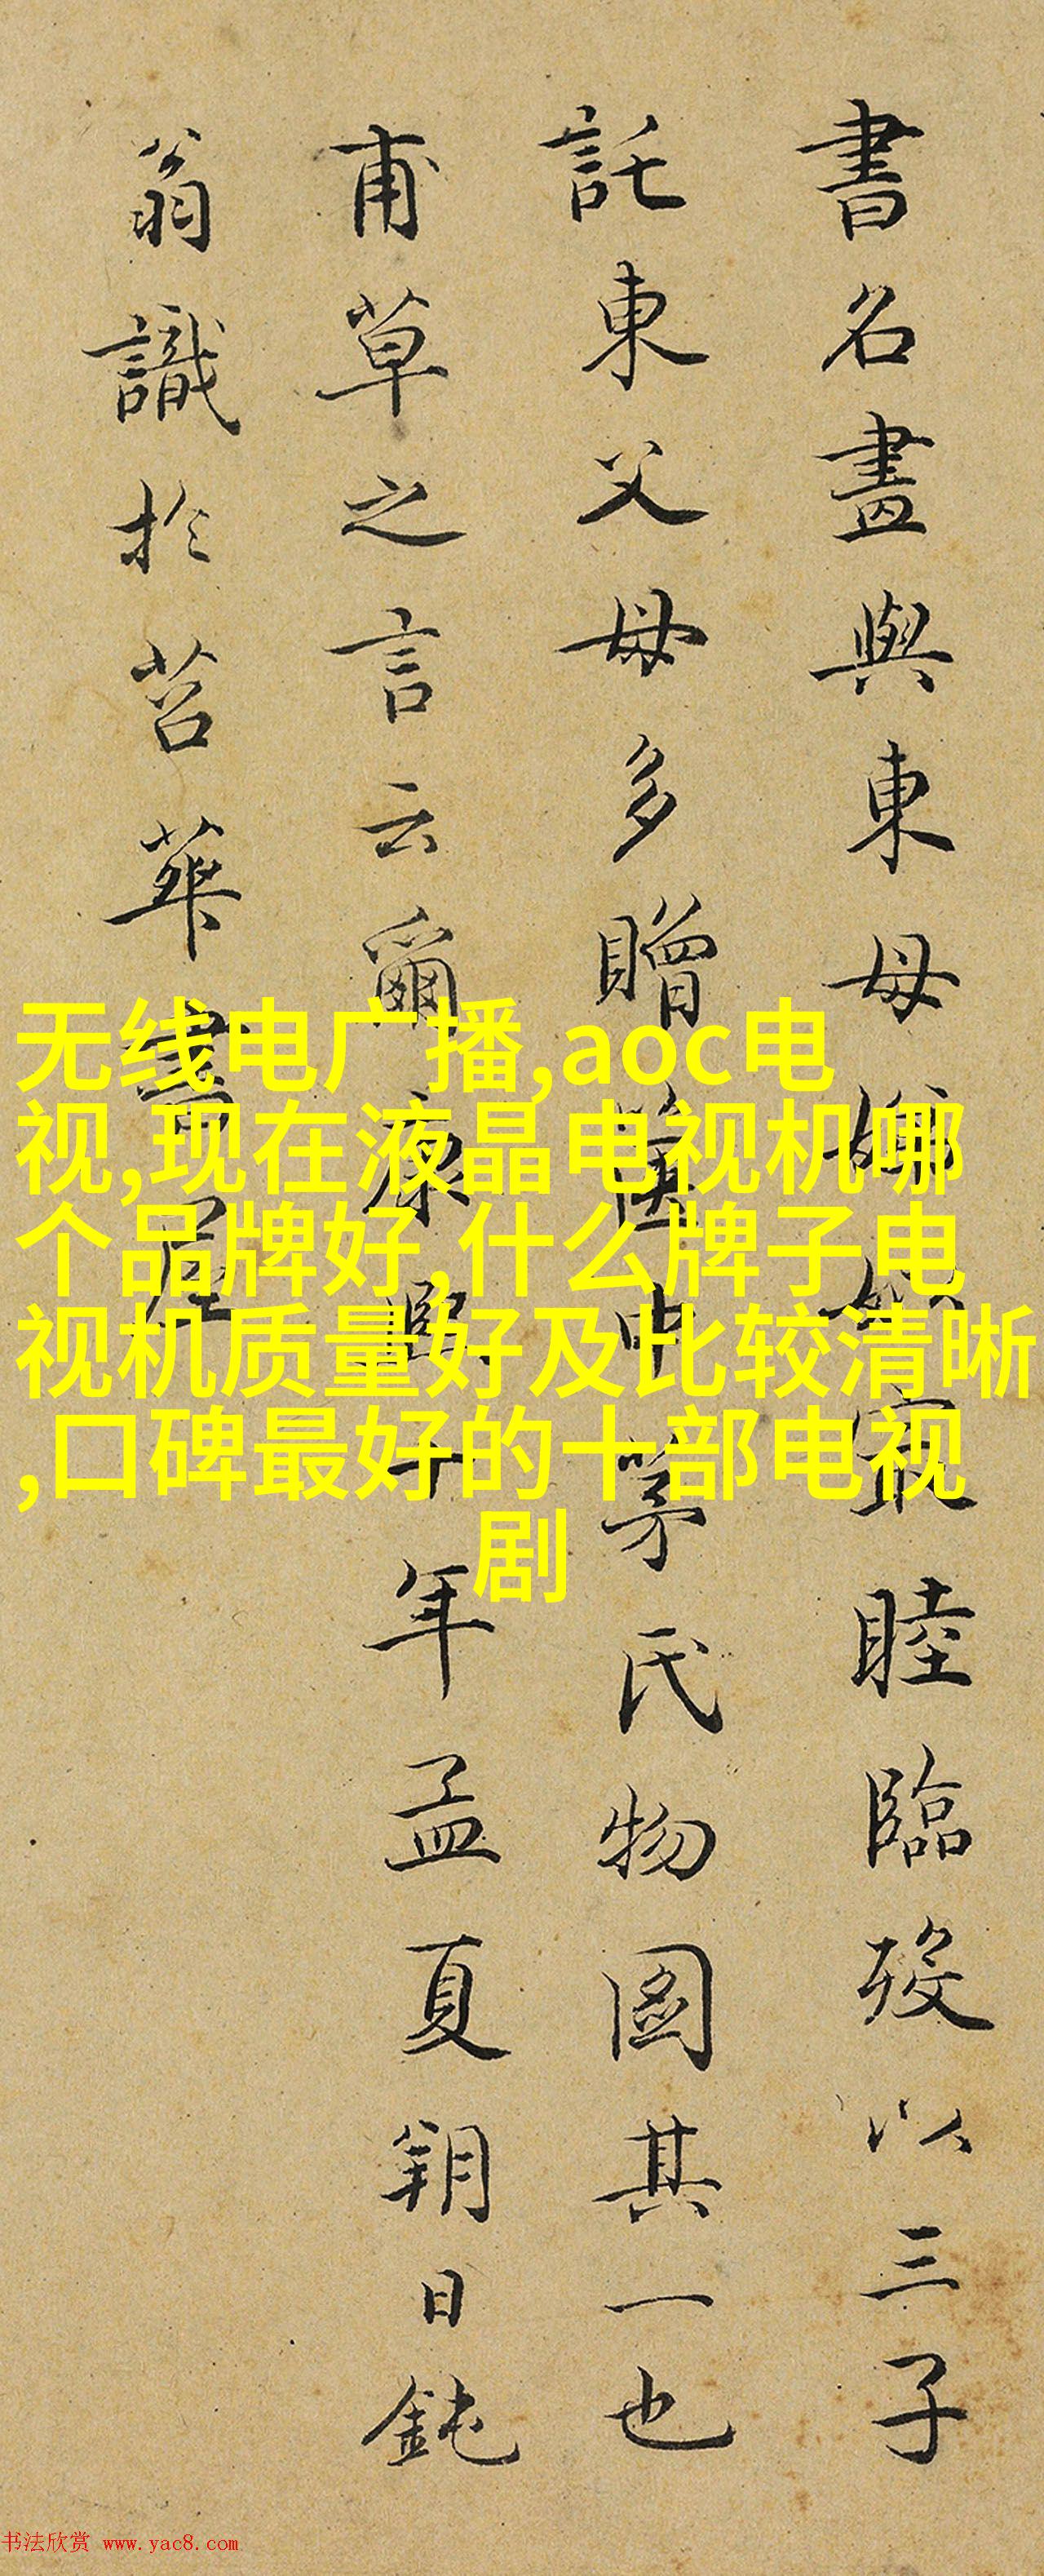 書名畫與東母姊㝡睦臨歿以三子
託東父母多贈箧中茅氏物圖其一也
甫草之言云爾康熙壬午年孟夏朔日鈍
翁識於苕華書屋
无线电广播,aoc电
视,现在液晶电视机哪
个品牌好,什么牌子电
视机质量好及比较清晰
,口碑最好的十部电视
剧
书法欣赏 www.yac8.com